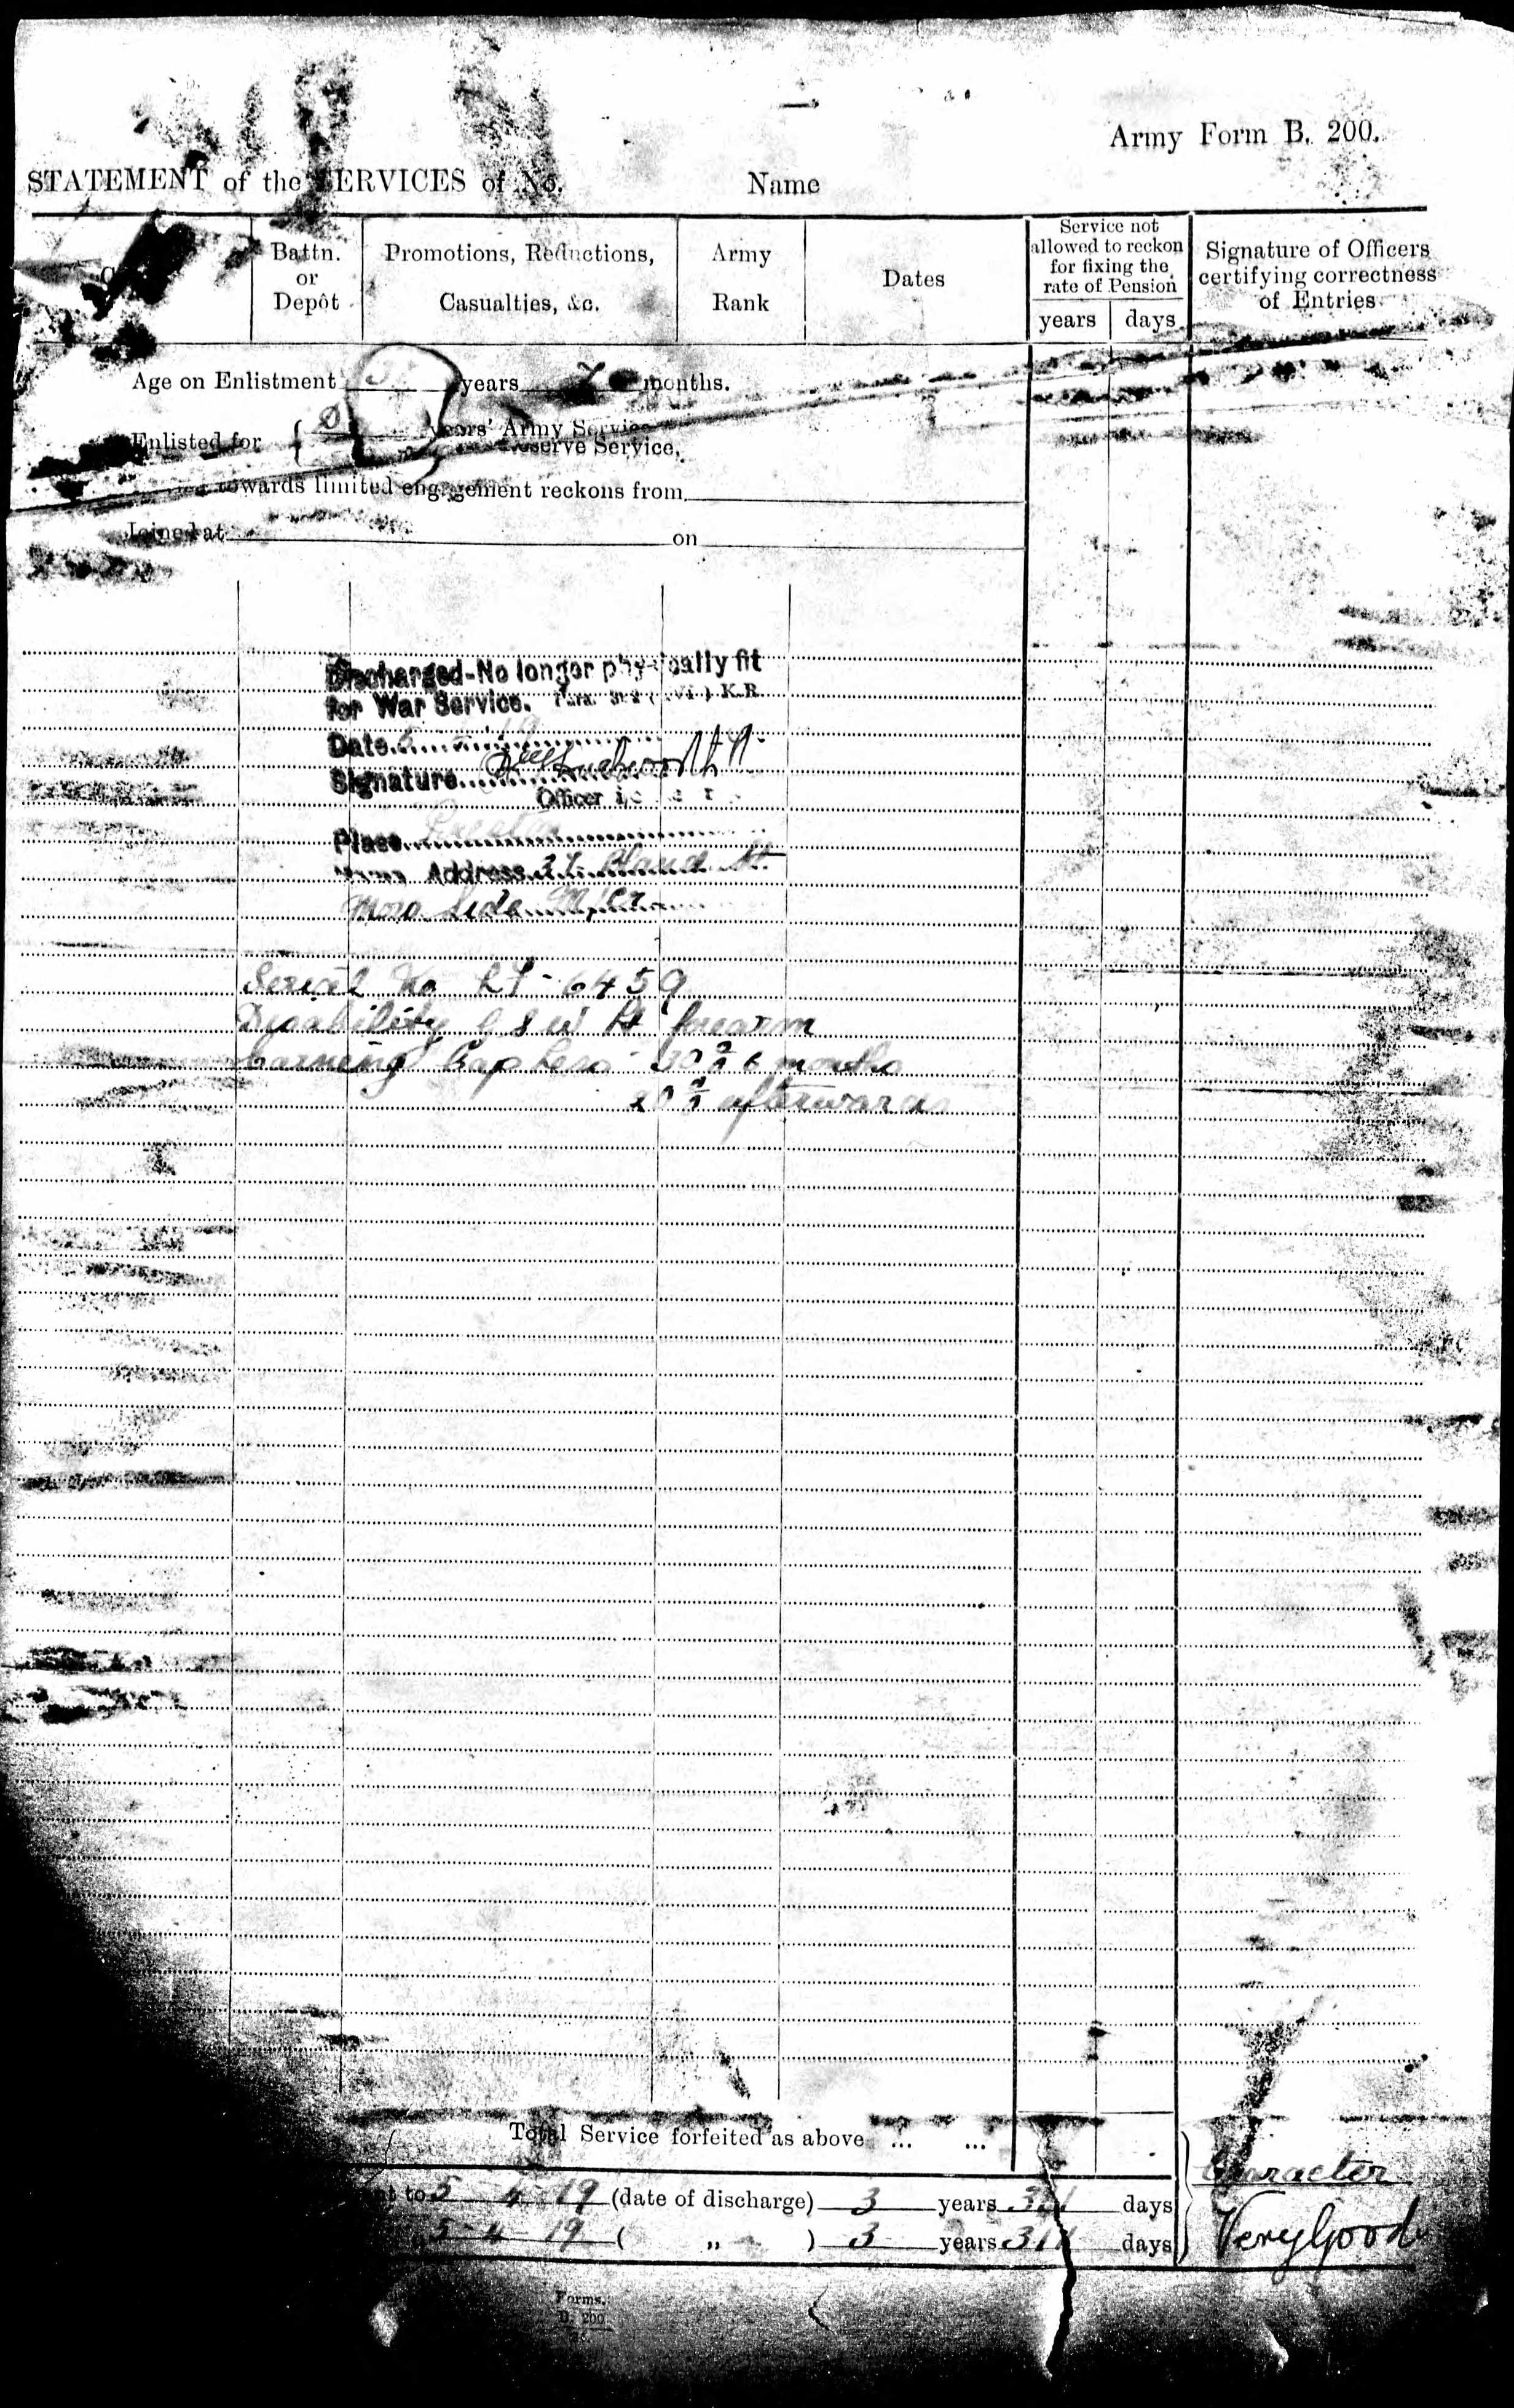 Army Form B. 200.
STATEMENT of the SERVICES of No. Name
Battn. or Depôt
Promotions, Reductions, Casualties, &c.
Army Rank
Dates
Service not allowed to reckon for fixing the rate of Pension
years days
Signature of Officers certifying correctness of Entries
Age on Enlistment years 7 months.
Enlisted for { years' Army Service
Reserve Service.
towards limited engagement reckons from
Joined at on
Discharged-No longer physically fit
for War Service. Para. K.R.
Date
Signature
Officer
Place Preston
Address 27 Bland St
Moss Side M/cr
Serial No 6459
Disability G S W forearm
Earning Cap Less 30% 6 months
20% afterwards
Total Service forfeited as above ... ...
to 5 4 19 (date of discharge) 3 years days
5-4 19 ( " ) 3 years days
Character
Very Good
Forms.
B. 200